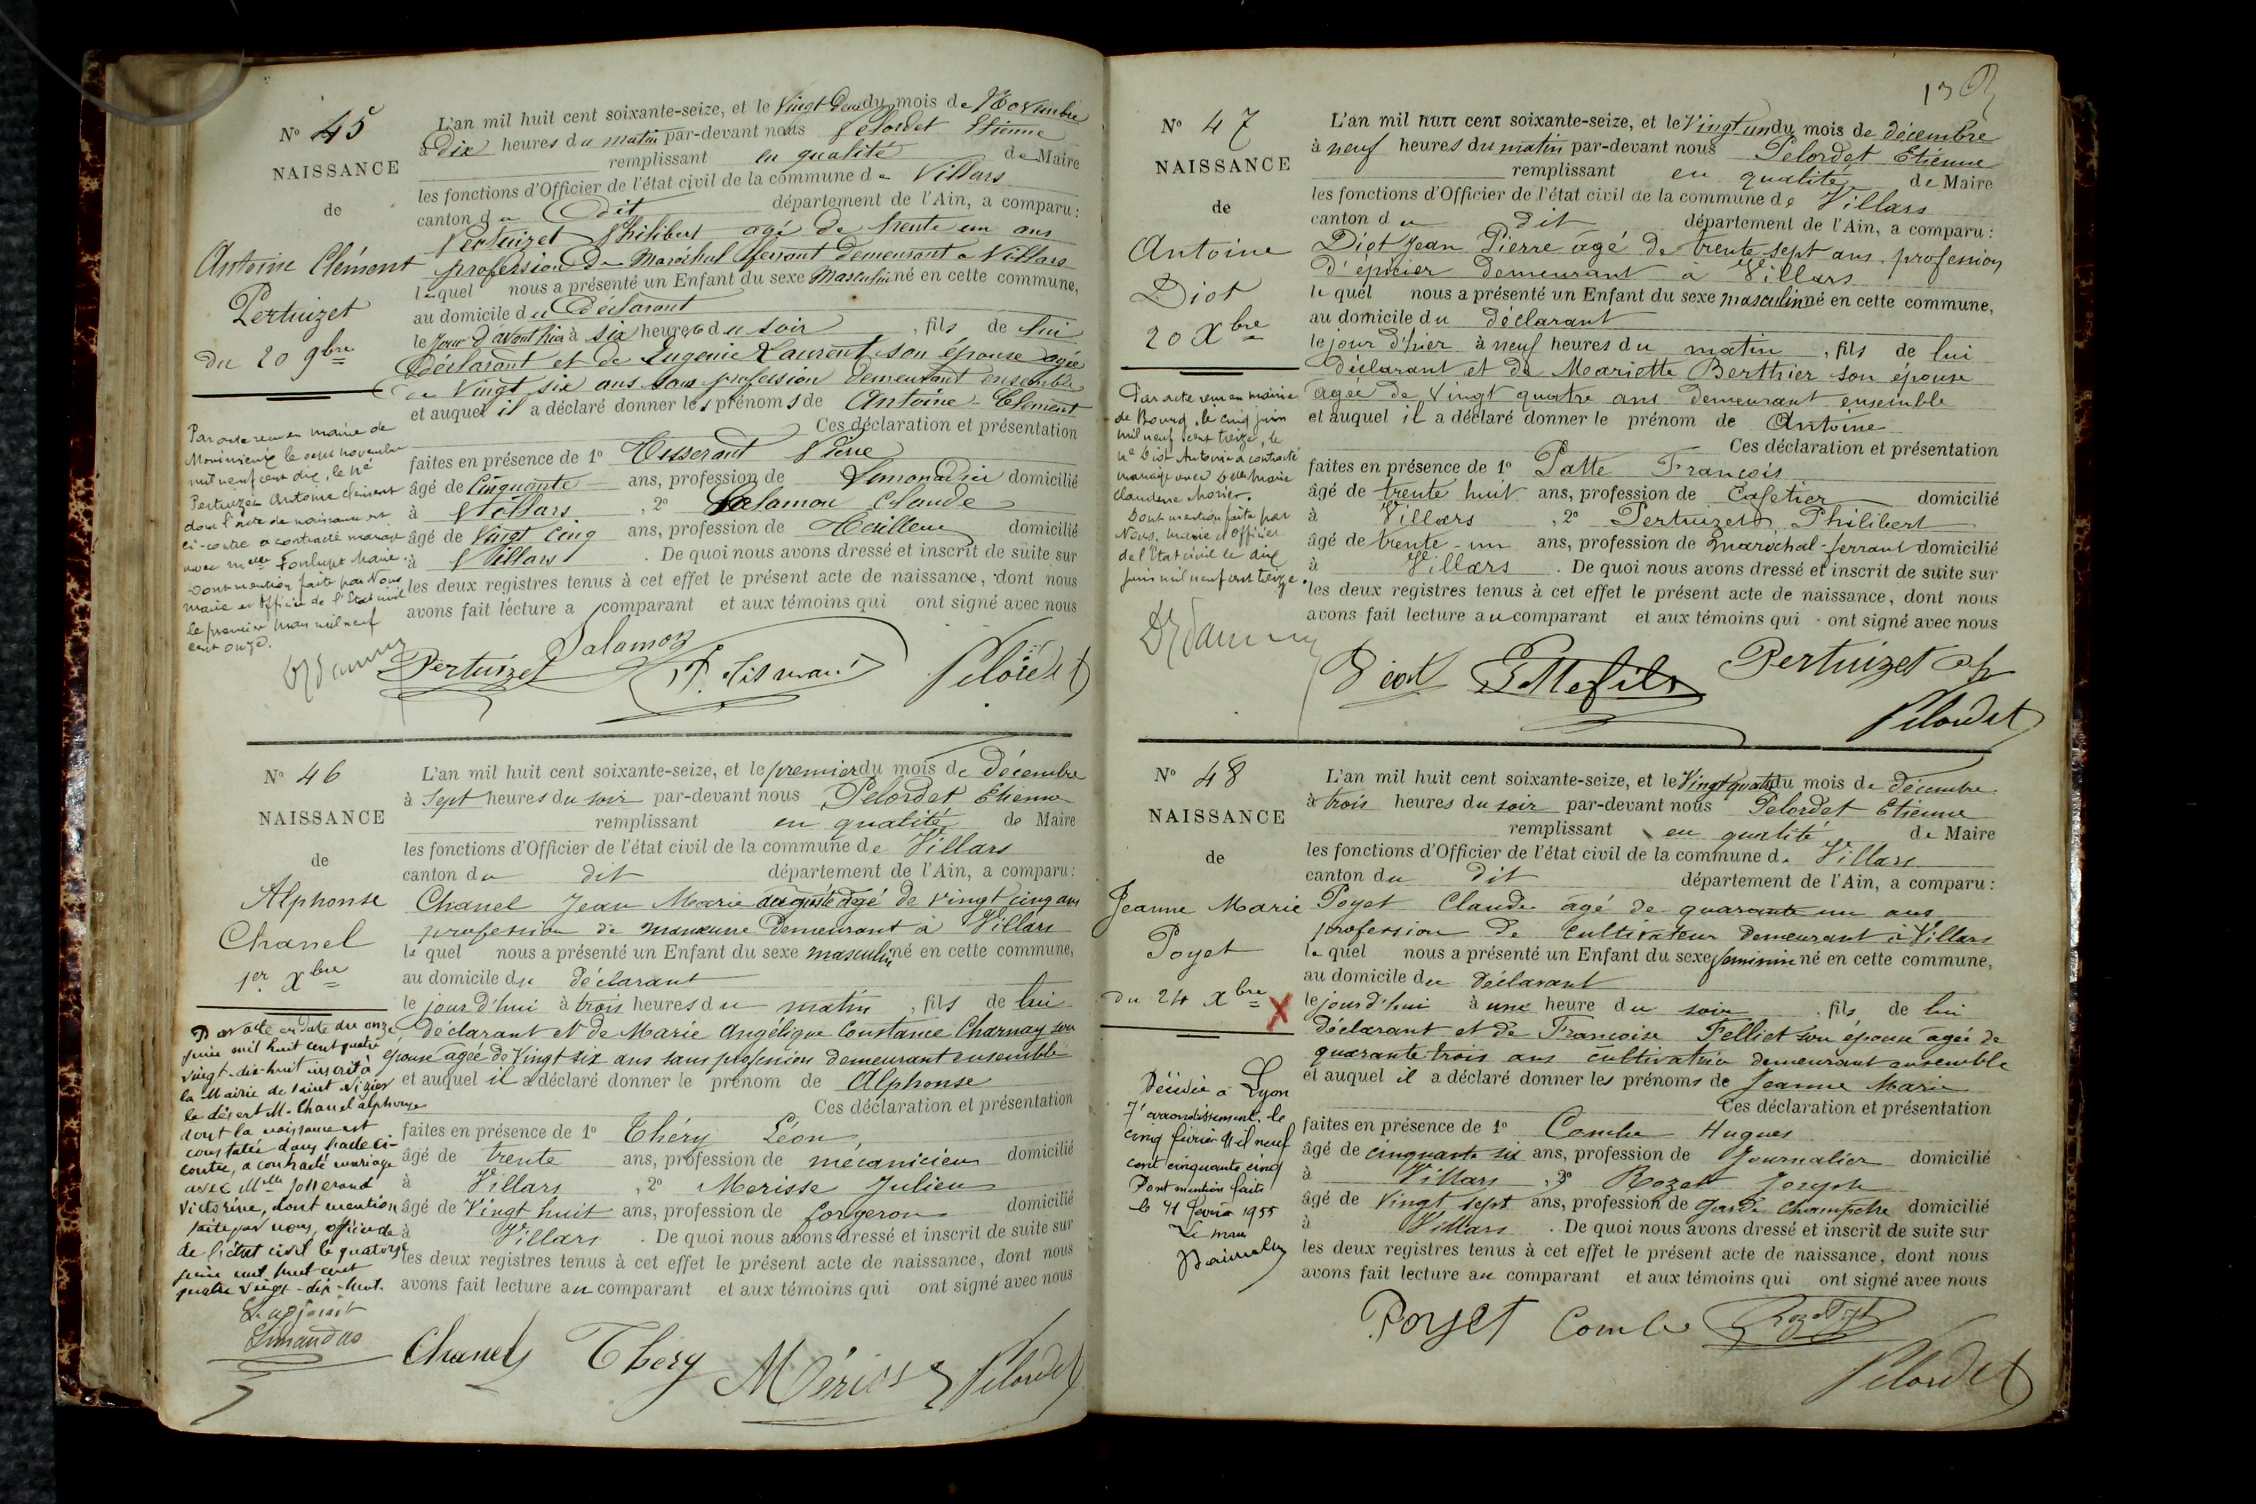 N° 45
NAISSANCE
de
Antoine Clément
Pertuizet
du 20 9bre
Par acte reçu en mairie de
le sept novembre
mil neuf cent dix, le né
Pertuizet Antoine Clément
dont l'acte de naissance est
ci-contre a contracté mariage
avec Melle Marie.
Dont mention faite par Nous
maire et Officier de l'Etat civil
le premier mars mil neuf
cent onze.
L'an mil huit cent soixante-seize, et le Vingt Deux du mois de Novembre
à Dix heures du matin par-devant nous Pelordet Etienne
remplissant en qualité de Maire
les fonctions d'Officier de l'état civil de la commune de Villars
canton du Dit département de l'Ain, a comparu:
Pertuizet Philibert agé de trente un ans
profession de Maréchal ferrant demeurant a Villars
lequel nous a présenté un Enfant du sexe Masculin né en cette commune,
au domicile du Déclarant
le Jour d'avant hier à six heures du soir, fils de lui
Déclarant et de Eugenie Laurent son épouse agée
de Vingt six ans sans profession demeurant ensemble
et auquel il a déclaré donner les prénoms de Antoine-Clement
Ces déclaration et présentation
faites en présence de 1° Tisserant Pierre
âgé de Cinquante ans, profession de Limonadier domicilié
à Villars, 2° Salamon Claude
âgé de Vingt Cinq ans, profession de domicilié
à Villars. De quoi nous avons dressé et inscrit de suite sur
les deux registres tenus à cet effet le présent acte de naissance, dont nous
avons fait lecture a comparant et aux témoins qui ont signé avec nous
Salamon
Pertuizet Pelordet
N° 46
NAISSANCE
de
Alphonse
Chanel
1er Xbre
Par acte en date du onze
juin mil huit cent quatre
vingt-dix-huit inscrit à
la Mairie de Saint Nizier
le désert M. Chanel Alphonse
dont la naissance est
constatée dans l'acte ci-
contre, a contracté mariage
avec Melle Josserand
Victorine, dont mention
faite par nous, officier de
de l'état civil le quatorze
juin mil huit cent
quatre vingt-dix-huit.
L'adjoint
L'an mil huit cent soixante-seize, et le premier du mois de décembre
à Sept heures du soir par-devant nous Pelordet Etienne
remplissant en qualité de Maire
les fonctions d'Officier de l'état civil de la commune de Villars
canton du dit département de l'Ain, a comparu:
Chanel Jean Marie auguste agé de vingt cinq ans
profession de manœuvre Demeurant à Villars
le quel nous a présenté un Enfant du sexe masculin né en cette commune,
au domicile du déclarant
le jour d'hui à trois heures du matin, fils de lui
Déclarant et de Marie Angélique Constance Charnay son
épouse agée de Vingt-six ans sans profession demeurant ensemble
et auquel il a déclaré donner le prénom de Alphonse
Ces déclaration et présentation
faites en présence de 1° Théry Léon,
âgé de trente ans, profession de mécanicien domicilié
à Villars, 2° Merisse Julien
âgé de Vingt huit ans, profession de forgeron domicilié
à Villars. De quoi nous avons dressé et inscrit de suite sur
les deux registres tenus à cet effet le présent acte de naissance, dont nous
avons fait lecture au comparant et aux témoins qui ont signé avec nous
Chanel Théry Mérisse Pelordet
13
N° 47
NAISSANCE
de
Antoine
Diot
20 Xbre
Par acte reçu en mairie
de Bourg, le cinq juin
mil neuf cent treize, le
né Diot Antoine a contracté
mariage avec Delle Marie
Claudine Morier.
Dont mention faite par
Nous, maire et Officier
de l'Etat civil le dix
juin mil neuf cent treize.
L'an mil huit cent soixante-seize, et le Vingt un du mois de décembre
à neuf heures du matin par-devant nous Pelordet Etienne
remplissant en qualité de Maire
les fonctions d'Officier de l'état civil de la commune de Villars
canton du dit département de l'Ain, a comparu:
Diot Jean Pierre agé de trente sept ans profession
d'épicier demeurant à Villars
le quel nous a présenté un Enfant du sexe masculin né en cette commune,
au domicile du déclarant
le jour d'hier à neuf heures du matin, fils de lui
déclarant et de Mariette Berthier son épouse
agée de vingt quatre ans demeurant ensemble
et auquel il a déclaré donner le prénom de Antoine
Ces déclaration et présentation
faites en présence de 1° Patte François
âgé de trente huit ans, profession de Cafetier domicilié
à Villars, 2° Pertuizet Philibert
âgé de trente-un ans, profession de maréchal-ferrant domicilié
à Villars. De quoi nous avons dressé et inscrit de suite sur
les deux registres tenus à cet effet le présent acte de naissance, dont nous
avons fait lecture au comparant et aux témoins qui ont signé avec nous
Diot Patte fils Pertuizet Ph
Pelordet
N° 48
NAISSANCE
de
Jeanne Marie
Poyet
du 24 Xbre
X
Décédée à Lyon
7e arrondissement, le
cinq février Mil neuf
cent cinquante cinq
Dont mention faite
le 11 février 1955
Le maire
L'an mil huit cent soixante-seize, et le Vingt quatre du mois de décembre
à trois heures du soir par-devant nous Pelordet Etienne
remplissant en qualité de Maire
les fonctions d'Officier de l'état civil de la commune de Villars
canton du dit département de l'Ain, a comparu:
Poyet Claude agé de quarante un ans
profession de cultivateur demeurant à Villars
le quel nous a présenté un Enfant du sexe féminin né en cette commune,
au domicile du déclarant
le jour d'hui à une heure du soir, fils de lui
déclarant et de Françoise Felliet son épouse agée de
quarante trois ans cultivatrice demeurant ensemble
et auquel il a déclaré donner les prénoms de Jeanne Marie
Ces déclaration et présentation
faites en présence de 1° Combe Hugues
âgé de cinquante six ans, profession de Journalier domicilié
à Villars, 2° Rozet Joseph
âgé de Vingt sept ans, profession de Garde Champêtre domicilié
à Villars. De quoi nous avons dressé et inscrit de suite sur
les deux registres tenus à cet effet le présent acte de naissance, dont nous
avons fait lecture au comparant et aux témoins qui ont signé avec nous
Poyet Combe Rozet
Pelordet